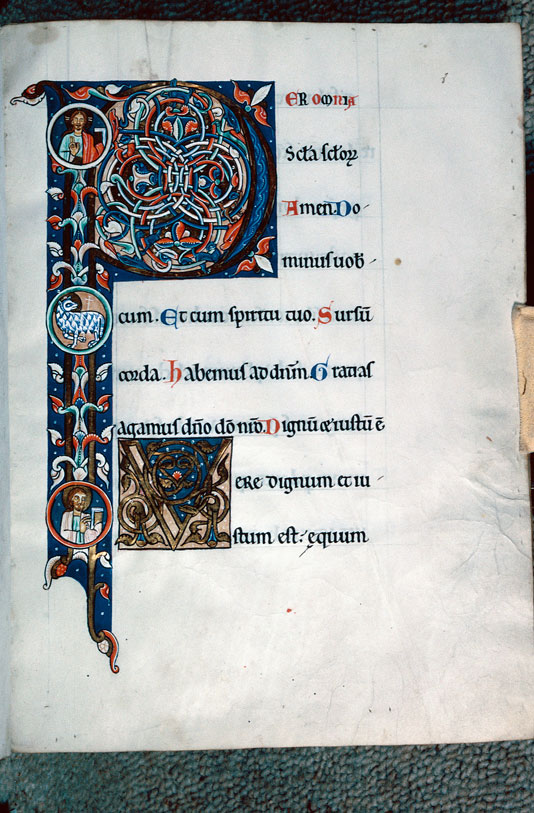 PER OMNIA
Sc̄la sc̄lorꝝ
Amen. Do
minus uob̄
cum. Et cum spiritu tuo. Sursū
corda. Habemus ad dn̄m. Gratias
agamus dn̄o dō nr̄o. Dignū et iustū ē
VERE dignum et iu
stum est. ęquum